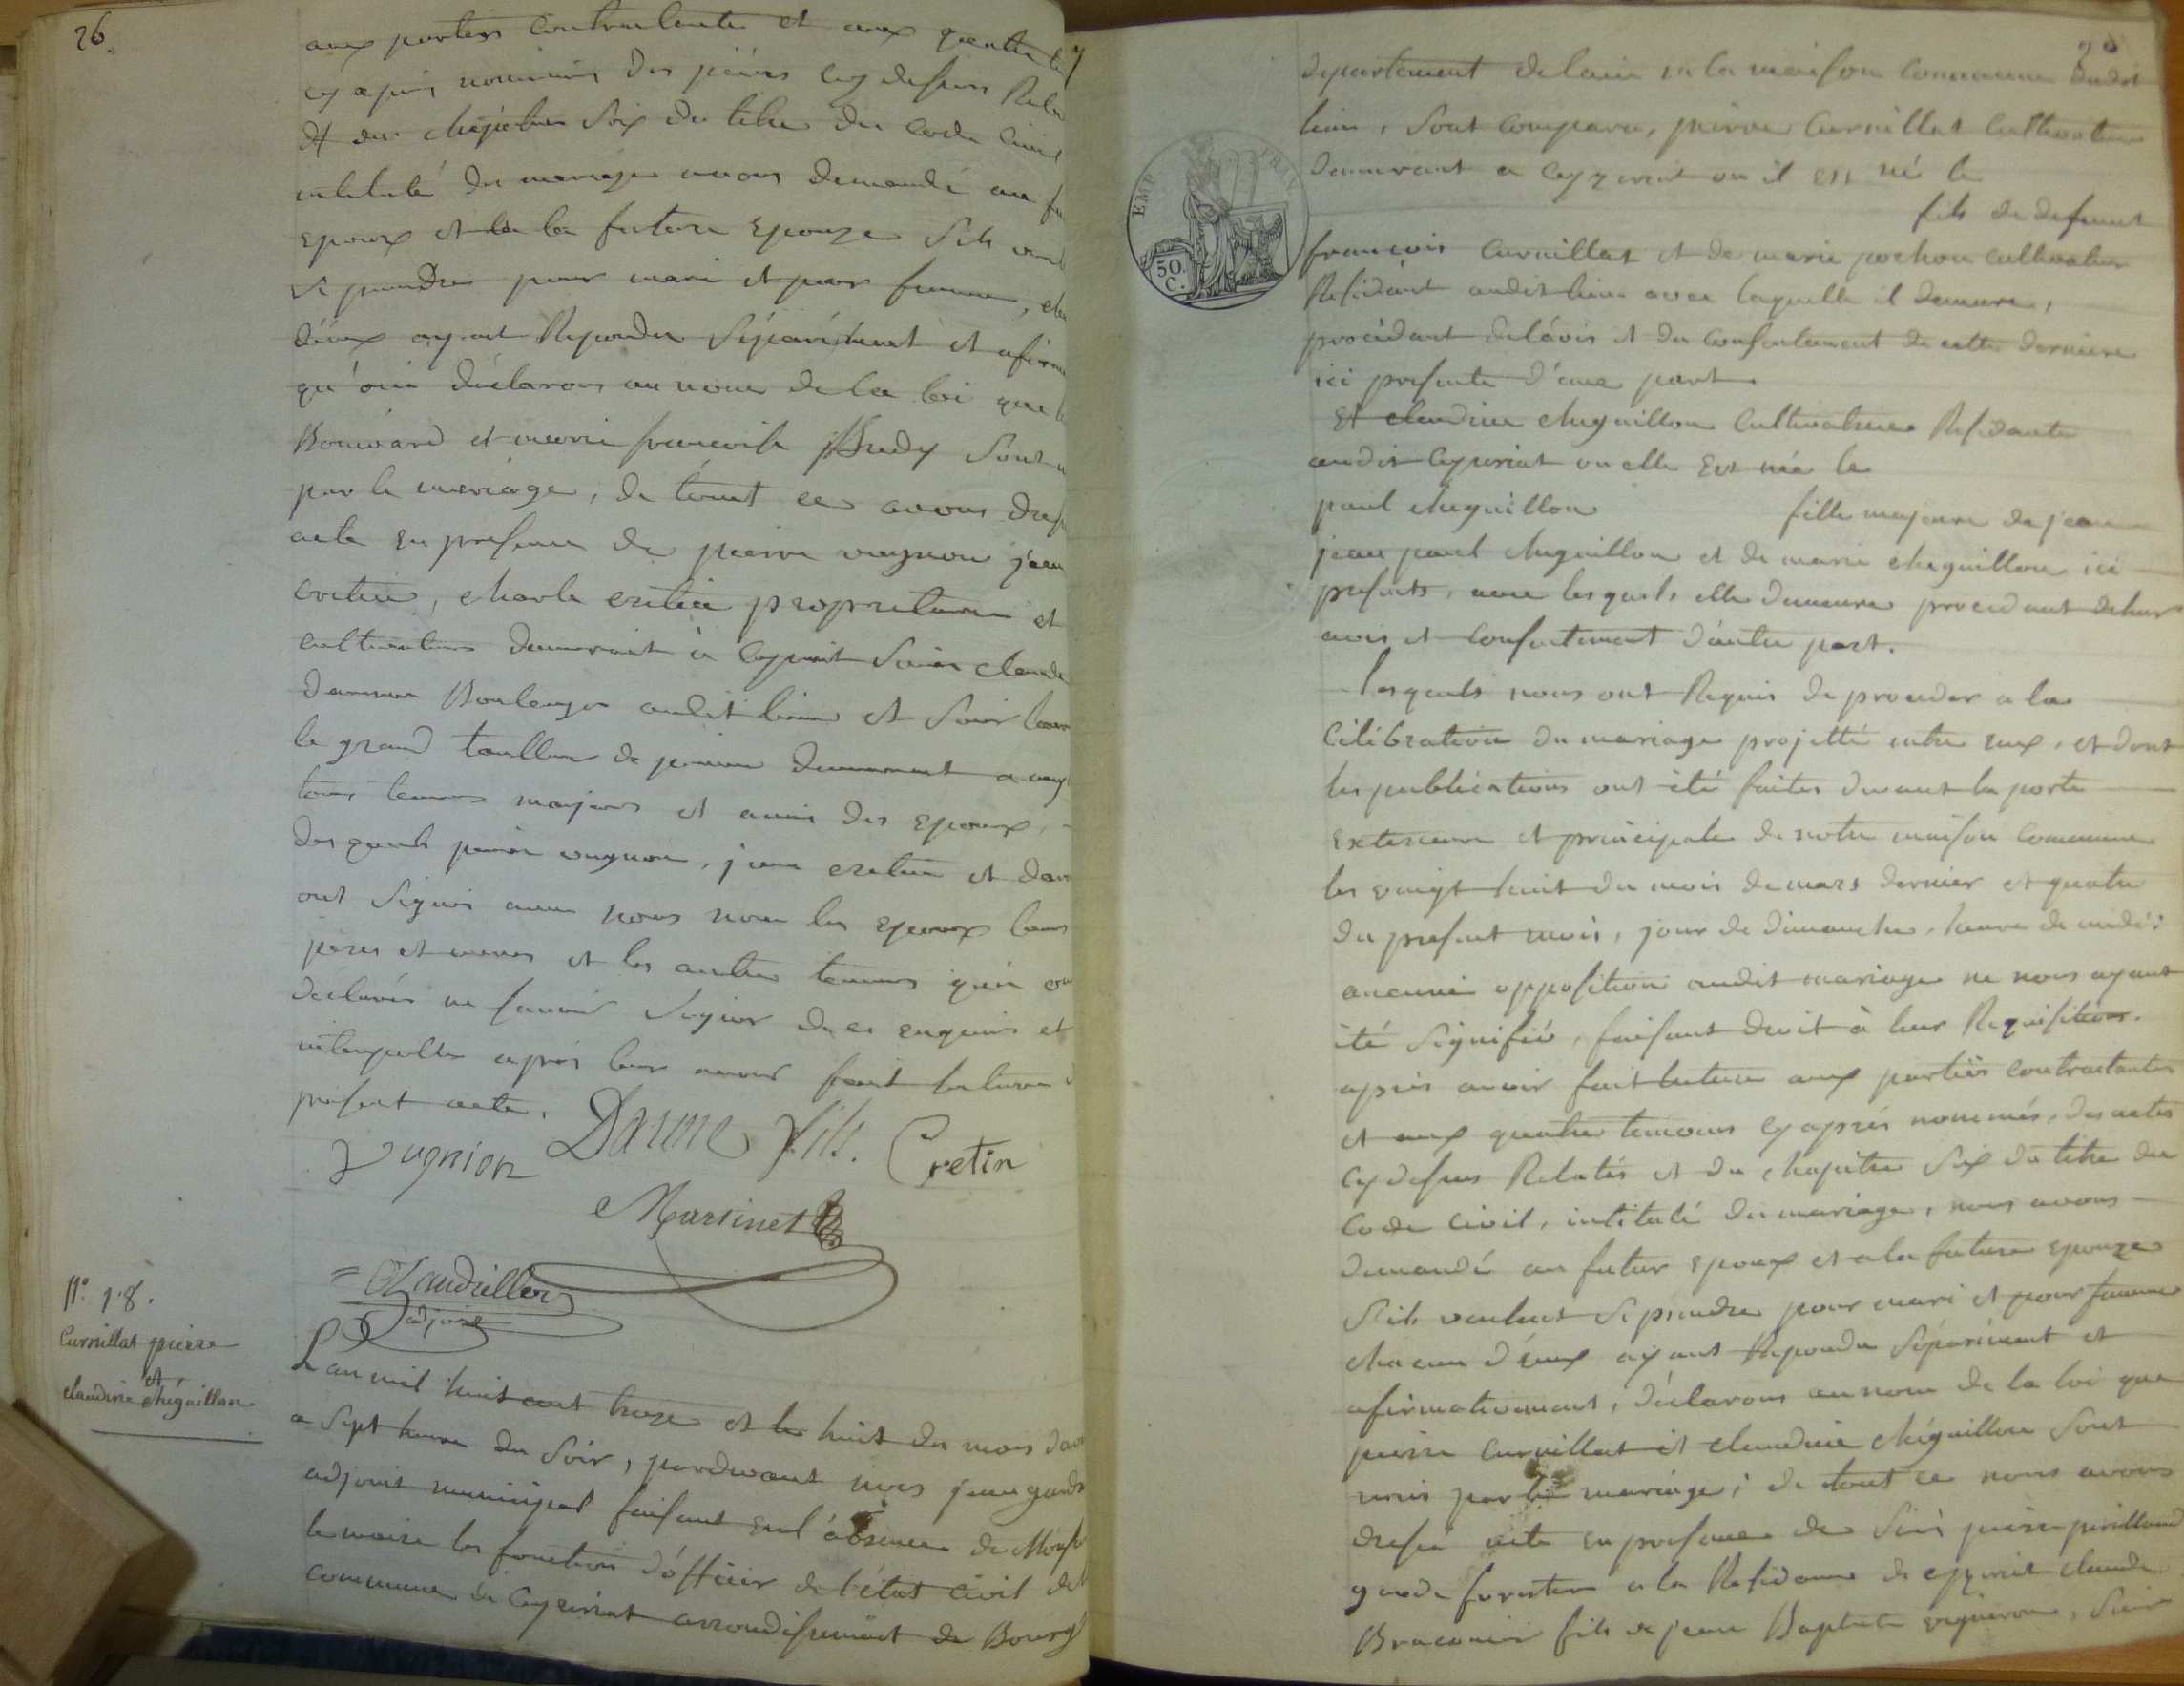 26.
aux parties contractantes et aux quatre
cy après nommés des pièces cy dessus
et du chapitre six du titre du code civil
intitulé du mariage avons demandé au
epoux et la future epouze s'ils
se prendre pour mari et pour femme,
d'eux ayant Repondu séparément et
qu'oui déclarons au nom de la loi que
Bouvard et marie françoise sont
par le mariage, de tout ce avons
acte en presence de pierre vugnon jean
cretin, charle cretin propriétaire et
cultivateurs demeurant à Ceyzeriat sieur claude
darme Boulanger audit lieu et sieur
le grand tailleur de pierre demeurant a
tous temoins majeurs et amis des epoux,
desquels pierre vugnon, jean cretin et
ont signés avec nous non les epoux leurs
peres et meres et les autres temoins qui
déclarés ne savoir signer de ce enquis et
interpellés après leur avoir fait lecture
present acte.
Vugnion Darme fils. Cretin
Marsinet
Gandillon
adjoint
N°. 18.
Curnillat pierre
et
claudine chéguillon
L'an mil huit cent treze et le huit du mois
a sept heure du soir, pardevant nous jean
adjoint municipal faisant en l'absence de
le maire les fonctions d'officier de l'état civil de
commune de Ceyzeriat arrondissement de Bourg
departement de lain en la maison commune dudit
lieu, sont comparu, pierre Curnillat cultivateur
demeurant a Ceyzeriat ou il est né le
fils de defunt
françois Curnillat et de marie pochon cultivatrice
Residant audit lieu avec laquelle il demeure,
procédant de l'avis et du consentement de cette derniere
ici presente d'une part
Et claudine cheguillon cultivatrice Residante
audit Ceyzeriat ou elle est née le
paul cheguillon fille majeure de jean
jean paul cheguillon et de marie cheguillon ici
presents, avec lesquels elle demeure procedant de leur
avis et consentement d'autre part.
Lesquels nous ont Requis de proceder a la
célébration du mariage projetté entre eux, et dont
les publications ont été faites devant la porte
exterieure et principale de notre maison commune
les vingt huit du mois de mars dernier et quatre
du present mois, jour de dimanche, heure de midi;
aucune opposition audit mariage ne nous ayant
été signifiée, faisant droit à leur Requisition.
après avoir fait lecture aux parties contractantes
et aux quatre temoins cy après nommés, des actes
cy dessus Relatés et du chapitre six du titre du
code civil, intitulé du mariage, nous avons
demandé au futur epoux et a la future epouze
s'ils veulent se prendre pour mari et pour femme
chacun d'eux ayant Repondu séparément et
afirmativement, déclarons au nom de la loi que
pierre Curnillat et claudine chéguillon sont
unis par le mariage; de tout ce nous avons
dressé acte en presence de sieur pierre
garde forestier a la Residence de Ceyzeriat claude
Braconnier fils de jean Baptiste vigneron, sieur
EMP
50
C.